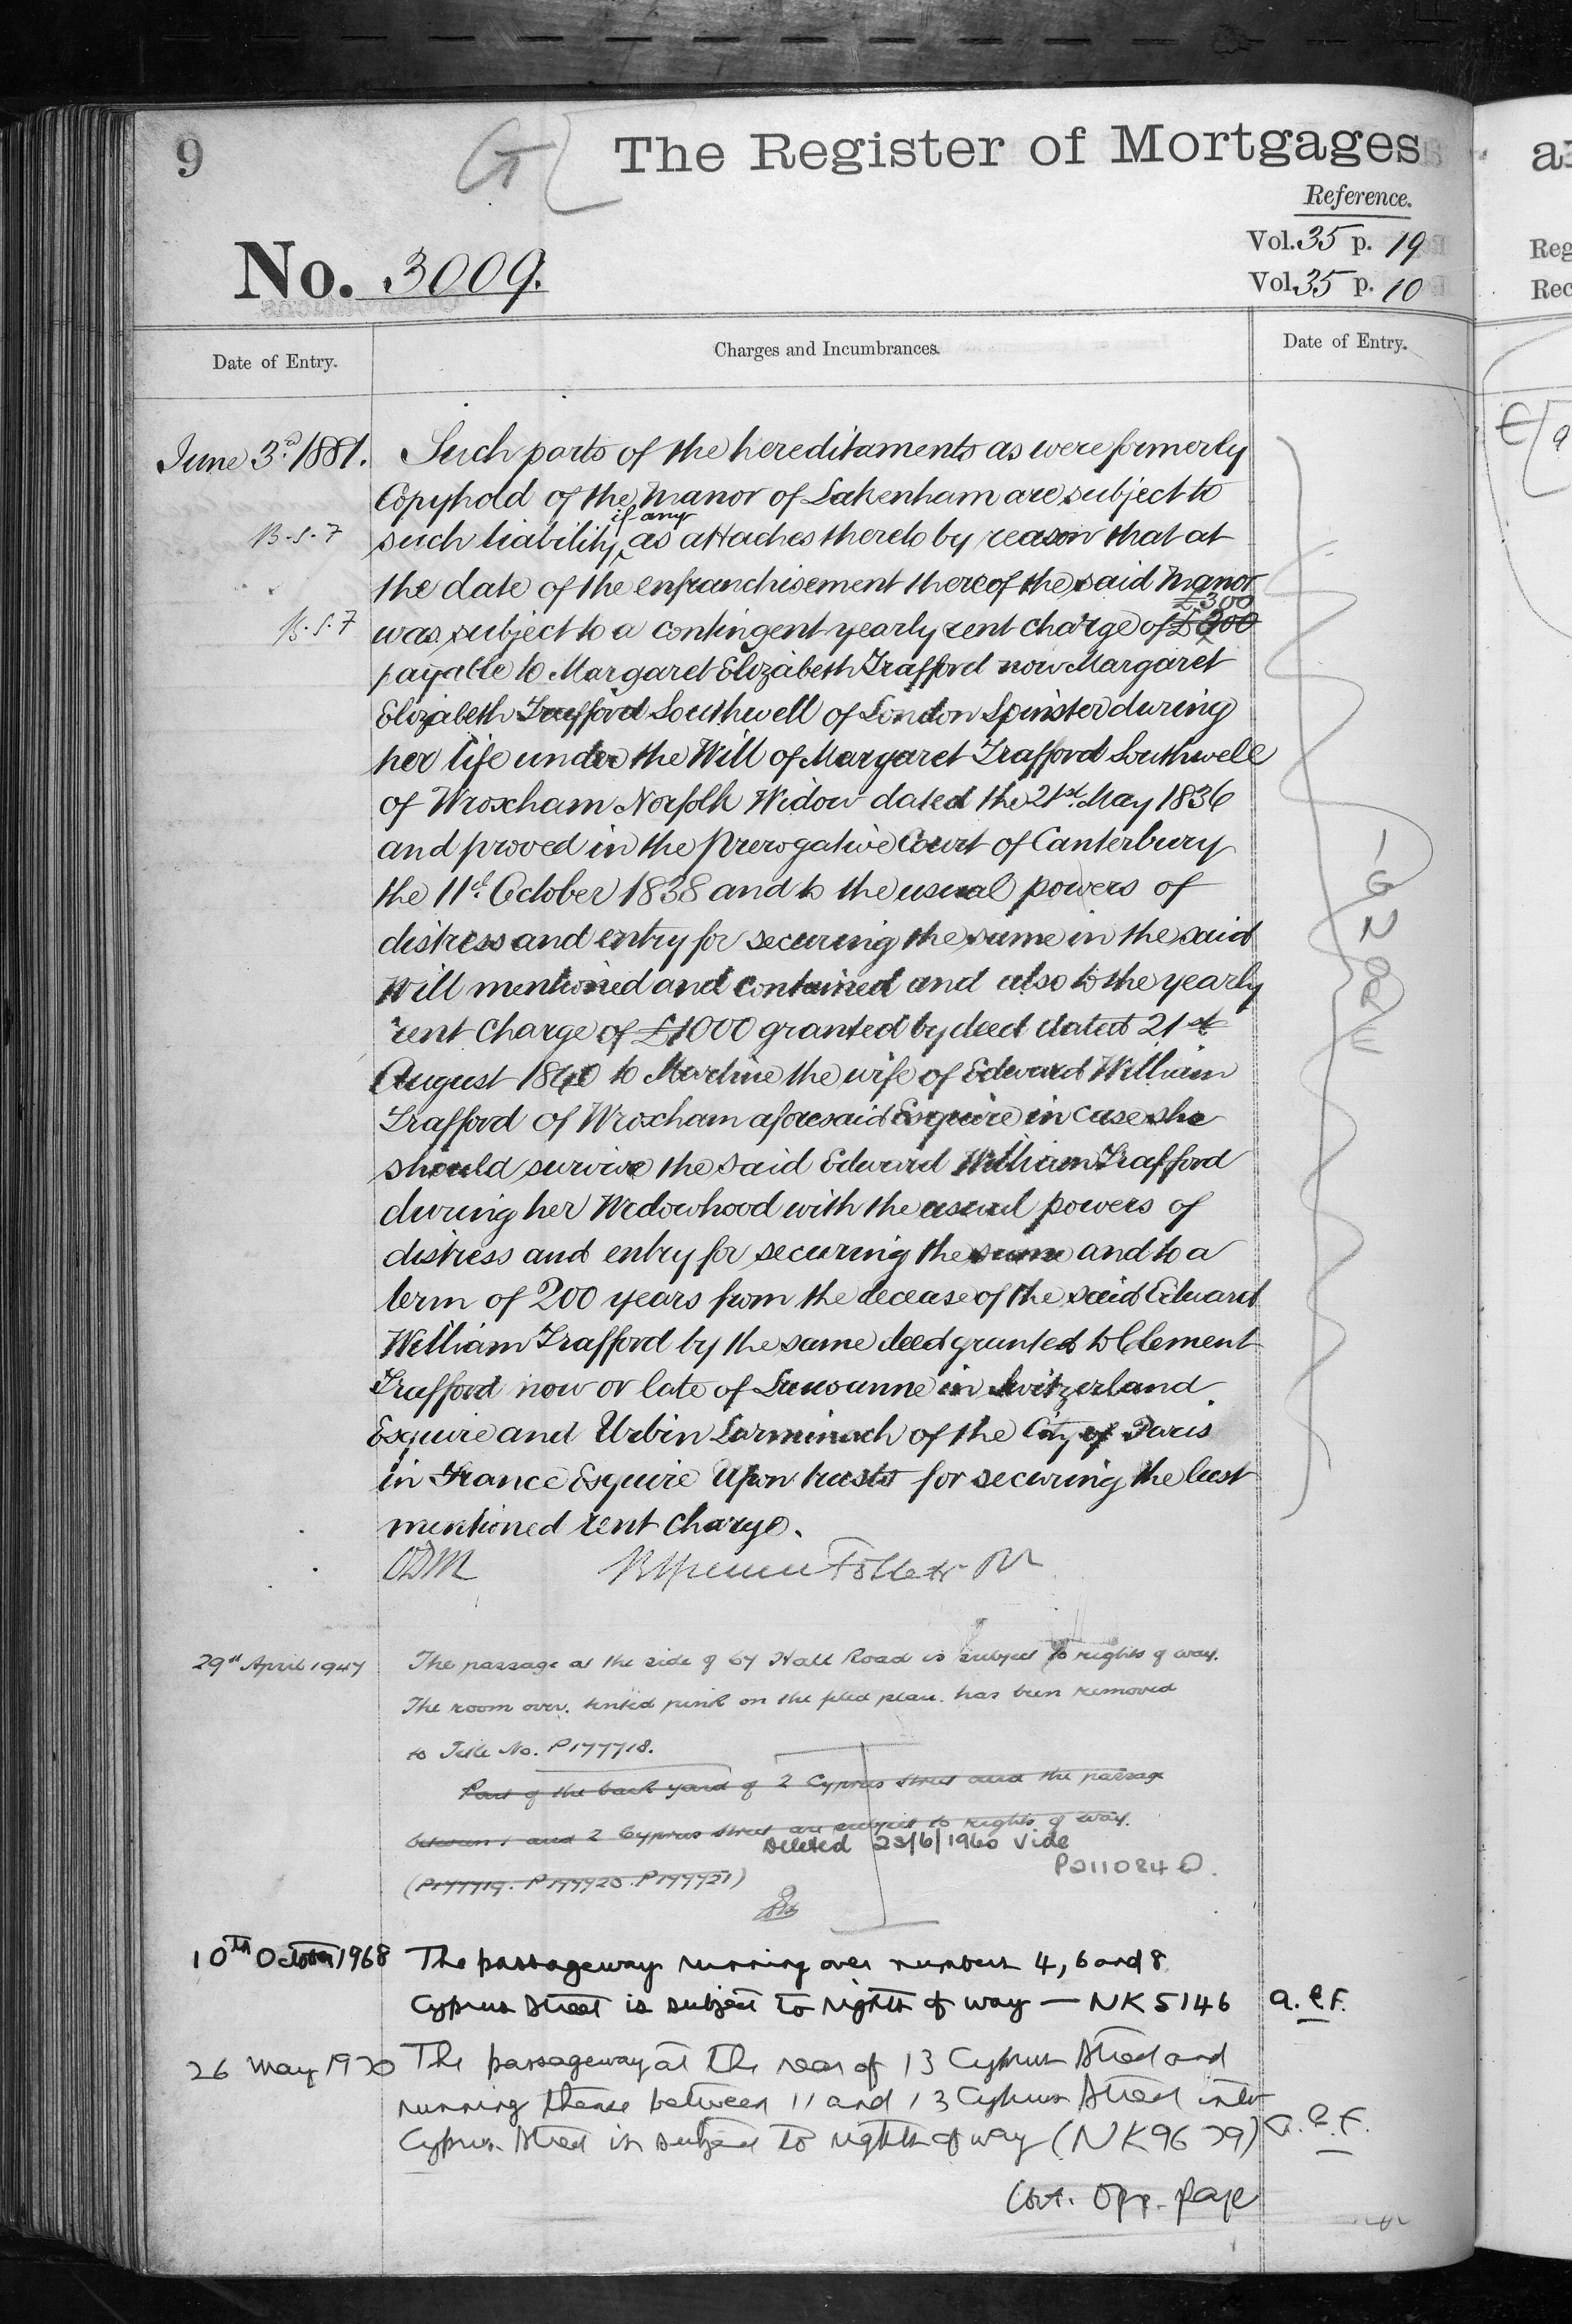 9
G
The Register of Mortgages
a
Reference.
Vol. 35 p. 19
Vol. 35 p. 10
No. 3009.
Reg
Rec
Date of Entry.
Charges and Incumbrances.
Date of Entry.
June 3rd 1881. Such parts of the hereditaments as were formerly
Copyhold of the Manor of Lakenham are subject to
if any
such liability ‸ as attaches thereto by reason that at
the date of the enfranchisement thereof the said Manor
£300
was subject to a contingent yearly rent charge of
payable to Margaret Elizabeth Trafford now Margaret
Elizabeth Trafford Southwell of London Spinster during
her life under the Will of Margaret Trafford Southwell
of Wroxham Norfolk Widow dated the 21st. May 1836
and proved in the Prerogative Court of Canterbury
the 11th October 1838 and to the usual powers of
distress and entry for securing the same in the said
Will mentioned and contained and also to the yearly
rent charge of £1000 granted by deed dated 21st
August to the wife of Edward William
Trafford of Wroxham aforesaid Esquire in case she
should survive the said Edward William Trafford
during her Widowhood with the usual powers of
distress and entry for securing the same and to a
term of 200 years from the decease of the said Edward
William Trafford by the same deed granted to Clement
Trafford now or late of Lausanne in Switzerland
Esquire and Urbin of the City of Paris
in France Esquire Upon trusts for securing the last
mentioned rent charge.
IGNORE
29th April 1947 The passage at the side of 67 Hall Road is subject to rights of way.
The room over, tinted pink on the filed plan, has been removed
to Title No. P177718.
Part of the back yard of 2 Cyprus Street and the passage
between 1 and 2 Cyprus Street are subject to rights of way.
Deleted 23/6/1960 vide
P211084
10th October 1968 The passageway running over numbers 4, 6 and 8
Cyprus Street is subject to rights of way — NK5146 a.e.F.
26 May 1970 The passageway at the rear of 13 Cyprus Street and
running thence between 11 and 13 Cyprus Street into
Cyprus Street is subject to rights of way (NK9679) a.e.F.
Cont. Opp. page